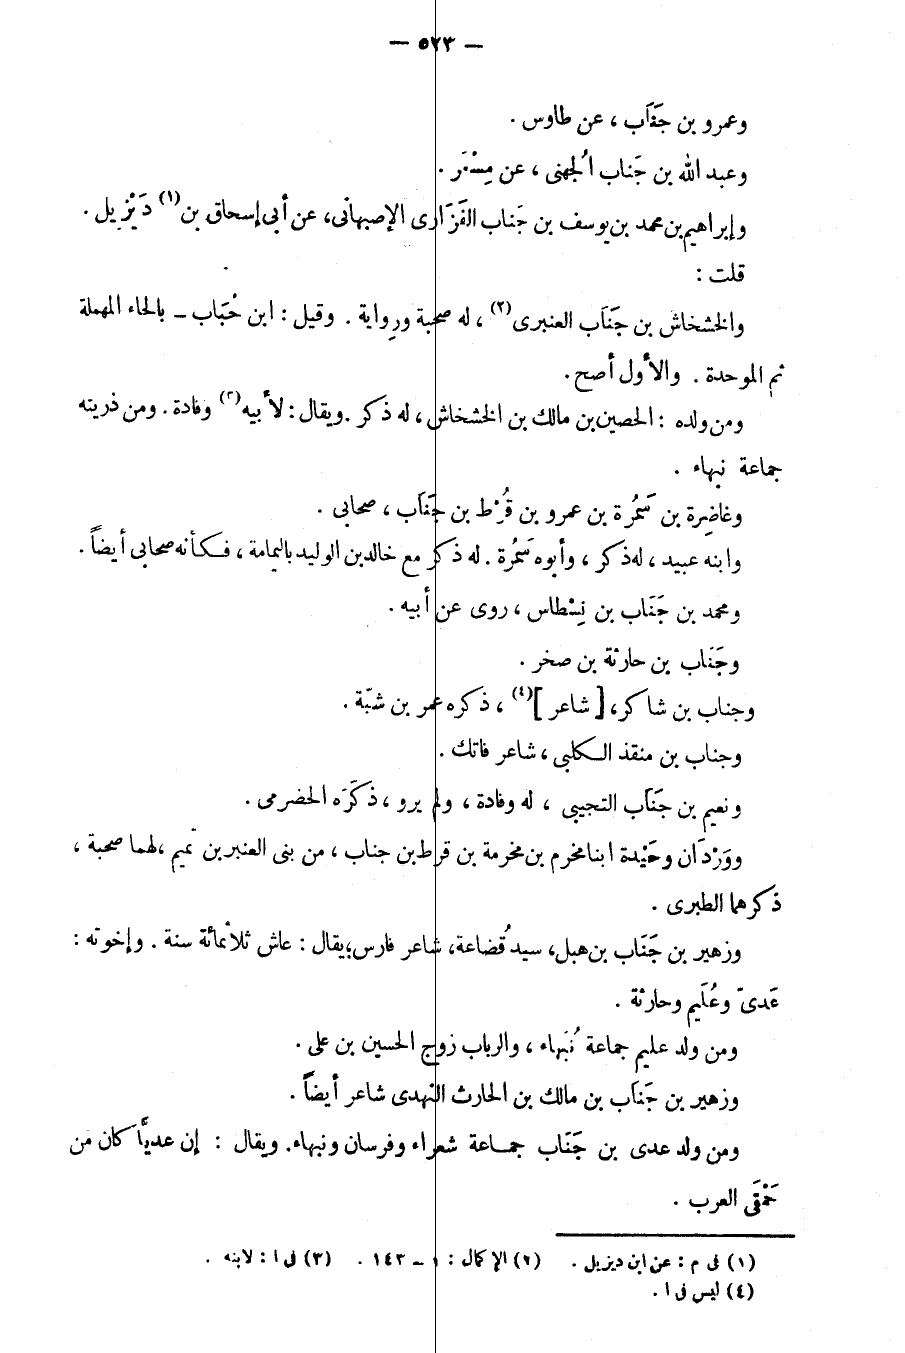 — ٥٢٣ —
وعمرو بن جَنَاب ، عن طاوس .
وعبد الله بن جَناب الُجهنى ، عن مِسْعَر .
وإبراهيم بن محمد بن يوسف بن جَناب الفَزَارى الإصبهانى، عن أبى إسحاق بن(١) دَيْزيل .
قلت :
والخشخاش بن جَنَاب العنبرى(٢) ، له صحبة ورواية . وقيل : ابن حُبَاب – بالحاء المهملة
ثم الموحدة . والأول أصح .
ومن ولده : الحصين بن مالك بن الخشخاش ، له ذكر . ويقال : لأبيه(٣) وفادة . ومن ذريته
جماعة نبهاء .
وغاضِرة بن سَمُرة بن عمرو بن قُرْط بن جَنَاب ، صحابى .
وابنه عبيد ، له ذكر ، وأبوه سَمُرة . له ذكر مع خالد بن الوليد باليمامة ، فكأنه صحابى أيضاً .
ومحمد بن جَنَاب بن نِسْطاس ، روى عن أبيه .
وجَنَاب بن حارثة بن صخر .
وجناب بن شاكر، [ شاعر ](٤) ، ذكره عمر بن شبّة .
وجناب بن منقذ الكلبى ، شاعر فاتك .
ونعيم بن جَنَاب التجيبى ، له وفادة ، ولم يرو ، ذكَرَه الحضرمى .
ووَرْدَان وحَيْدة ابنا مخرم بن مخرمة بن قرط بن جناب ، من بنى العنبر بن تميم ، لهما صحبة ،
ذكرهما الطبرى .
وزهير بن جَنَاب بن هبل، سيد قُضاعة، شاعر فارس، يقال : عاش ثلاثمائة سنة . وإخوته :
عَدىّ وعُلَيم وحارثة .
ومن ولد عليم جماعة نُبَهاء ، والرباب زوج الحسين بن على .
وزهير بن جَنَاب بن مالك بن الحارث النهدى شاعر أيضاً .
ومن ولد عدى بن جَنَاب جماعة شعراء وفرسان ونبهاء. ويقال : إن عديًّا كان من
حَمْقَى العرب .
(١) فى م : عن ابن ديزيل . (٢) الإكمال : ١ – ١٤٣ . (٣) فى ا : لابنه .
(٤) ليس فى ا .